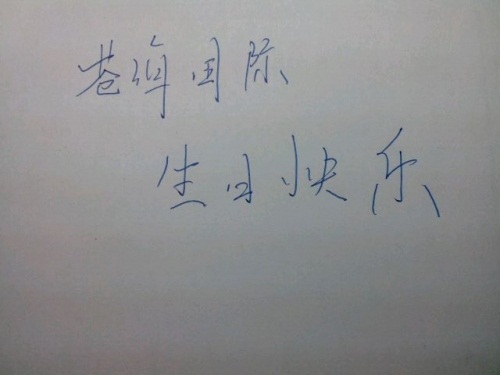 苍国际
生日快乐